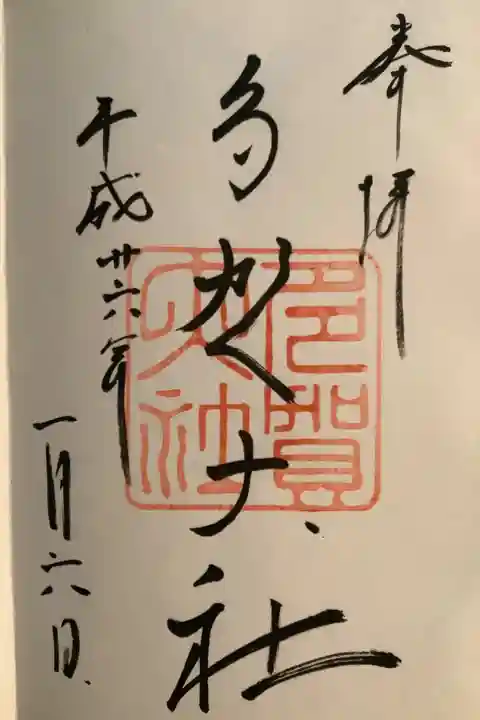 奉拝
多賀大社
多賀
大社
平成廿六年
一月六日